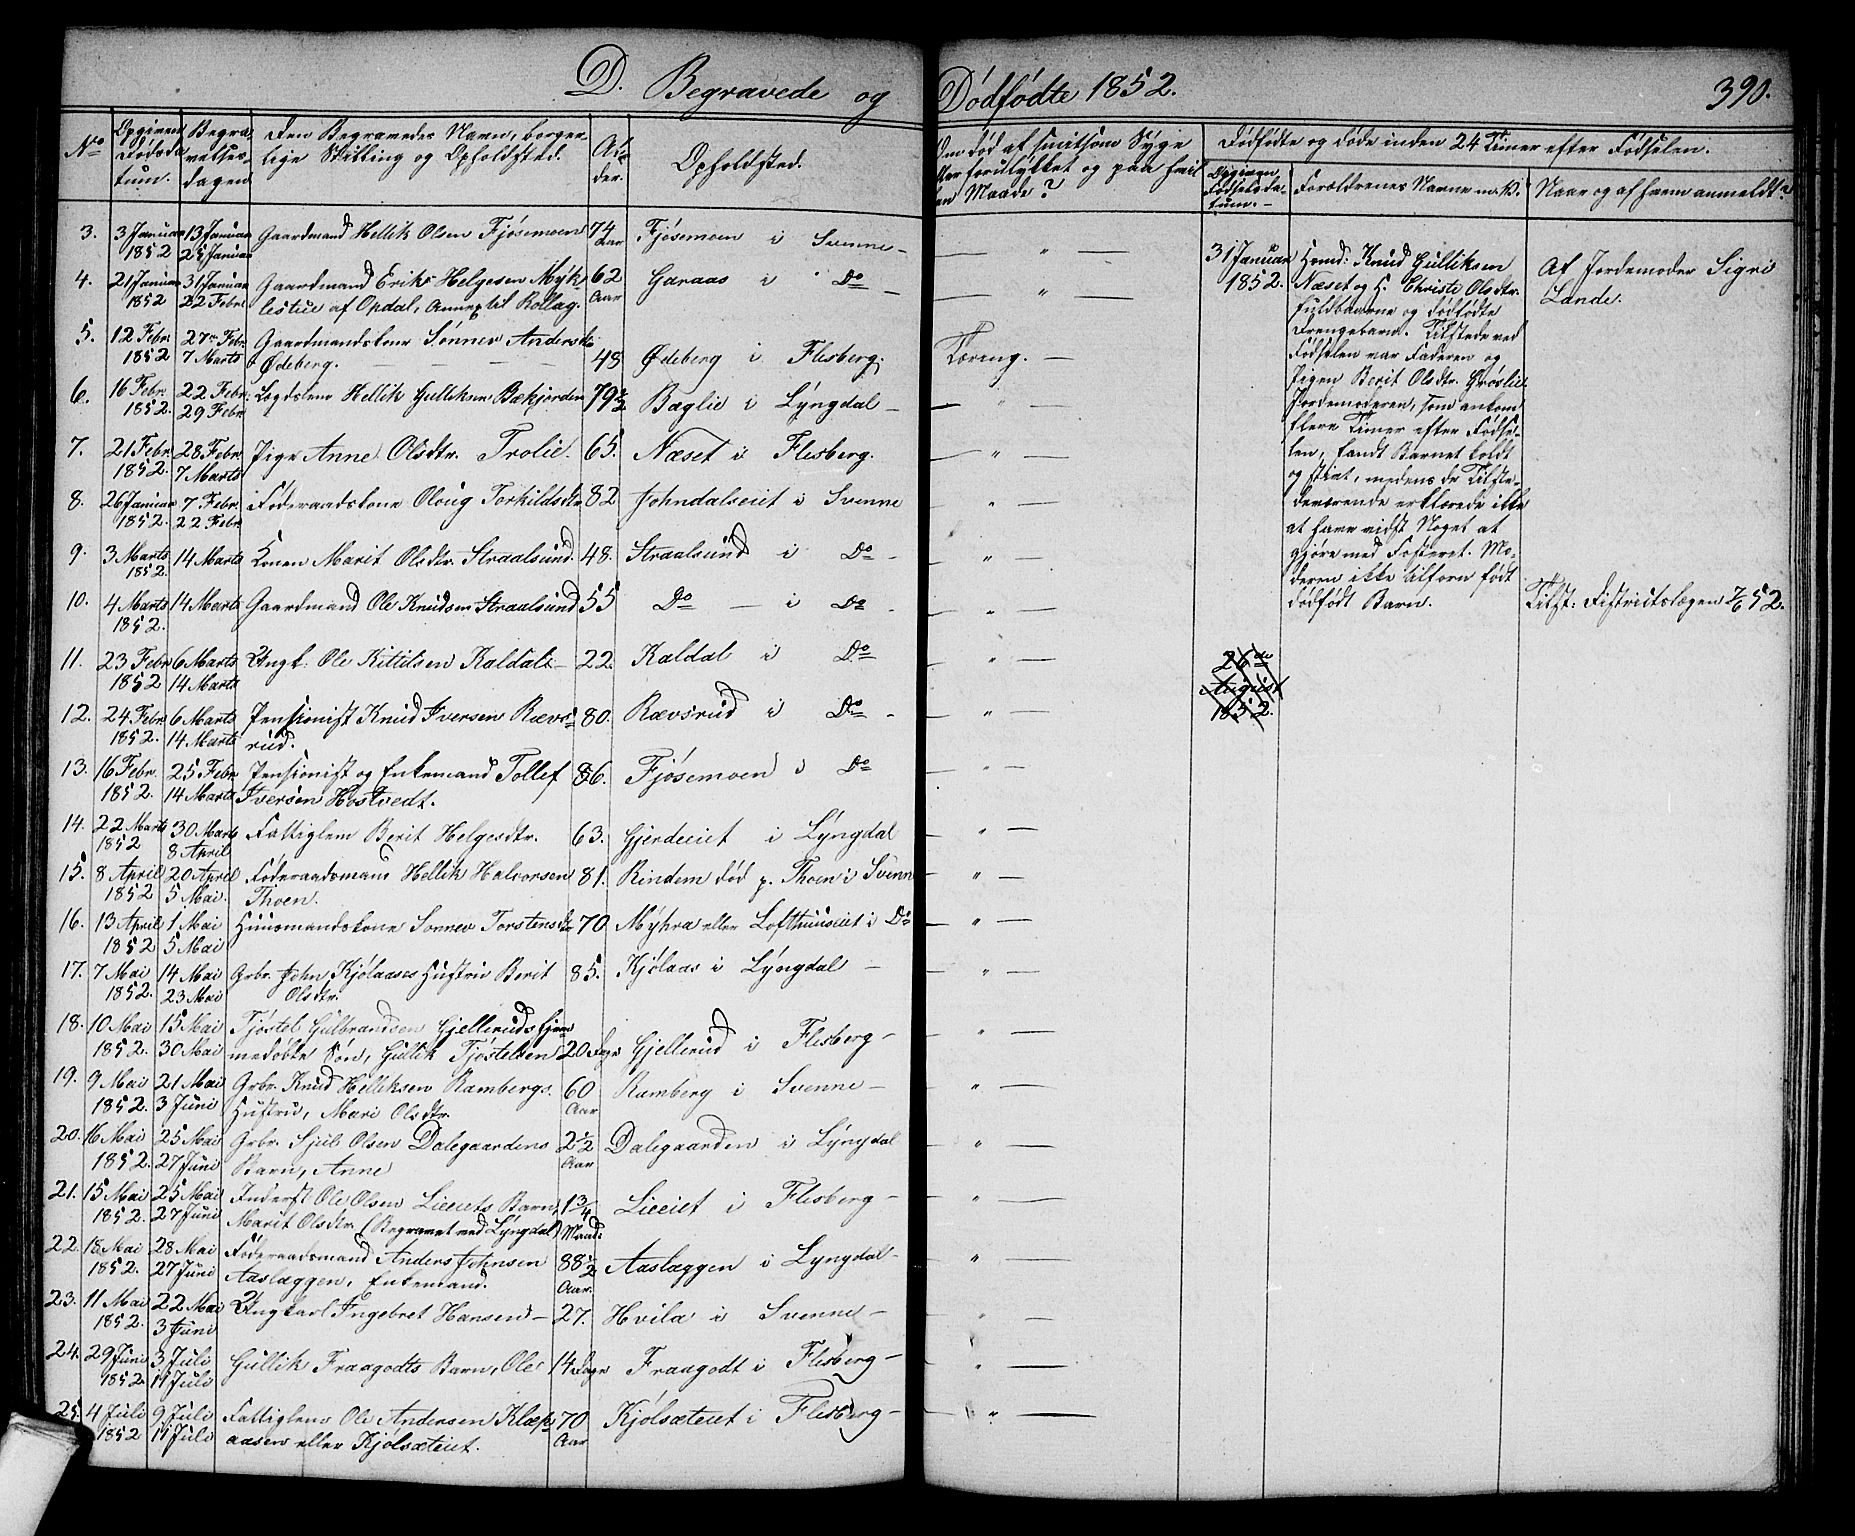 D. Begravede og Dödfödte 1852. 390.
No
Opgiven Dødsdatum.
Begravelsesdagen
Den Begravedes Navn, borgerlige Stilling og Opholdsted.
Alder.
Opholdsted.
Om død af smitsom Syge eller forulykket og paa hvilken Maade?
Dødfødte og døde inden 24 Timer efter Fødselen.
Opgiven Fødselsdatum.
Forældrenes Navne m.V.
Naar og af hvem anmeldt?
3. 3 Januar 1852 13 Januar 25 Januar Gaardmand Hellik Olsen Fjösemoen 74 Aar Fjösemoen i Svenne — " —
4. 21 Januar 1852 31 Januar 22 Febr. Gaardmand Erik Helgesen Myklestue af Opdal, Annex til Rollag. 62 Aar Garaas i Do — " —
5. 12 Febr. 1852 27 Febr. 7 Marts Gaardmandskone Sönnev Andersd. Ødeberg. 48 Ødeberg i Flesberg. Tæring. —
6. 16 Febr. 1852. 22 Febr. 29 Febr. Legdslem Hellik Gulliksen Bækjorden 79½ Baglie i Lyngdal — " —
7. 21 Febr. 1852. 28 Febr. 7 Marts Pige Anne Olsdtr. Trolie. 65. Næset i Flesberg. — " —
8. 26 Januar 1852. 7 Febr. 22 Febr. Föderaadskone Oloug Torkildsdtr 82. Johndalseiet i Svenne — " —
9. 3 Marts 1852. 14 Marts Konen Marit Olsdtr. Straalsund. 48. Straalsund i Do — " —
10. 4 Marts 1852. 14 Marts Gaardmand Ole Knudsen Straalsund 55 Do — i Do — " —
11. 23 Febr. 1852 6 Marts 14 Marts Ungk. Ole Kittilsen Kaldal — 22. Kaldal i Do — " —
12. 24 Febr. 1852. 6 Marts 14 Marts Pensionist Knud Iversen Rævsrud. 80. Rævsrud i Do — " —
13. 16 Febr. 1852. 25 Febr. 14 Marts Pensionist og Enkemand Tollef Iversen Hostvedt. 86. Fjösemoen i Do — " —
14. 22 Marts 1852 30 Marts 8 April Fattiglem Berit Helgesdtr. 63. Gjerdeeiet i Lyngdal — " —
15. 8 April 1852 20 April 5 Mai. Föderaadsmand Hellik Halvorsen Thoen. 81. Rindem død p. Thoen i Svenne — " —
16. 13 April 1852 1 Mai 5 Mai Huusmandskone Sönnev Torstensdtr 70 Myhra eller Lofthuuseiet i Do — " —
17. 7 Mai 1852. 14 Mai 23 Mai Grbr. John Kjölaases Hustru Berit Olsdtr. 85. Kjölaas i Lyngdal — — " —
18. 10 Mai 1852. 15 Mai 30 Mai Tjöstel Gulbrandsen Gjelleruds hjemmedöbte Sön, Gullik Tjöstelsen 20 Dage Gjellerud i Flesberg — — " —
19. 9 Mai 1852. 21 Mai 3 Juni Grbr. Knud Helliksen Rambergs. Hustru, Mari Olsdtr. 60 Aar Ramberg i Svenne — — " —
20. 16 Mai 1852. 25 Mai 27 Juni Grbr. Sjul Olsen Dalegaardens Barn, Anne 2½ Aar Dalegaarden i Lyngdal — " —
21. 15 Mai 1852. 25 Mai 27 Juni Inderst Ole Olsen Lieeiets Barn, Marit Olsdtr. (Begravet ved Lyngdal) 1¾ Maand. Lieeiet i Flesberg — — " —
22. 18 Mai 1852. 28 Mai 27 Juni Föderaadsmand Anders Johnsen Aaslæggen, Enkemand. 88½ Aar. Aaslæggen i Lyngdal — — " —
23. 11 Mai 1852. 22 Mai 3 Juni Ungkarl Ingebret Hansen — 27. Hvila i Svenne — — " —
24. 29 Juni 1852. 3 Juli 11 Juli Gullik Fraagodts Barn, Ole 14 Dage Fraagodt i Flesberg — — " —
25. 4 Juli 1852 9 Juli 11 Juli Fattiglem Ole Andersen Klæpaasen eller Kjölsæteiet. 70 Aar Kjölsæteiet i Flesberg — — " —
31 Januar 1852.
Hsmd: Knud Gulliksen
Næset og H. Christi Olsdtr.
fuldbaarne og dödfödte
Drengebarn. Tilstede ved
Födselen var Faderen og
Pigen Berit Olsdtr. Gröslie.
Jordemoderen, som ankom
flere Timer efter Födselen,
fandt Barnet koldt
og stivt, medens de Tilstedeværende
erklærede ikke
at have vidst Noget at
gjöre med Fosteret. Moderen
ikke tilforn födt
dödfödt Barn.
Af Jordemoder Sigri
Lande.
Tilst: Distriktslægen 7/6 52.
26de August 1852.